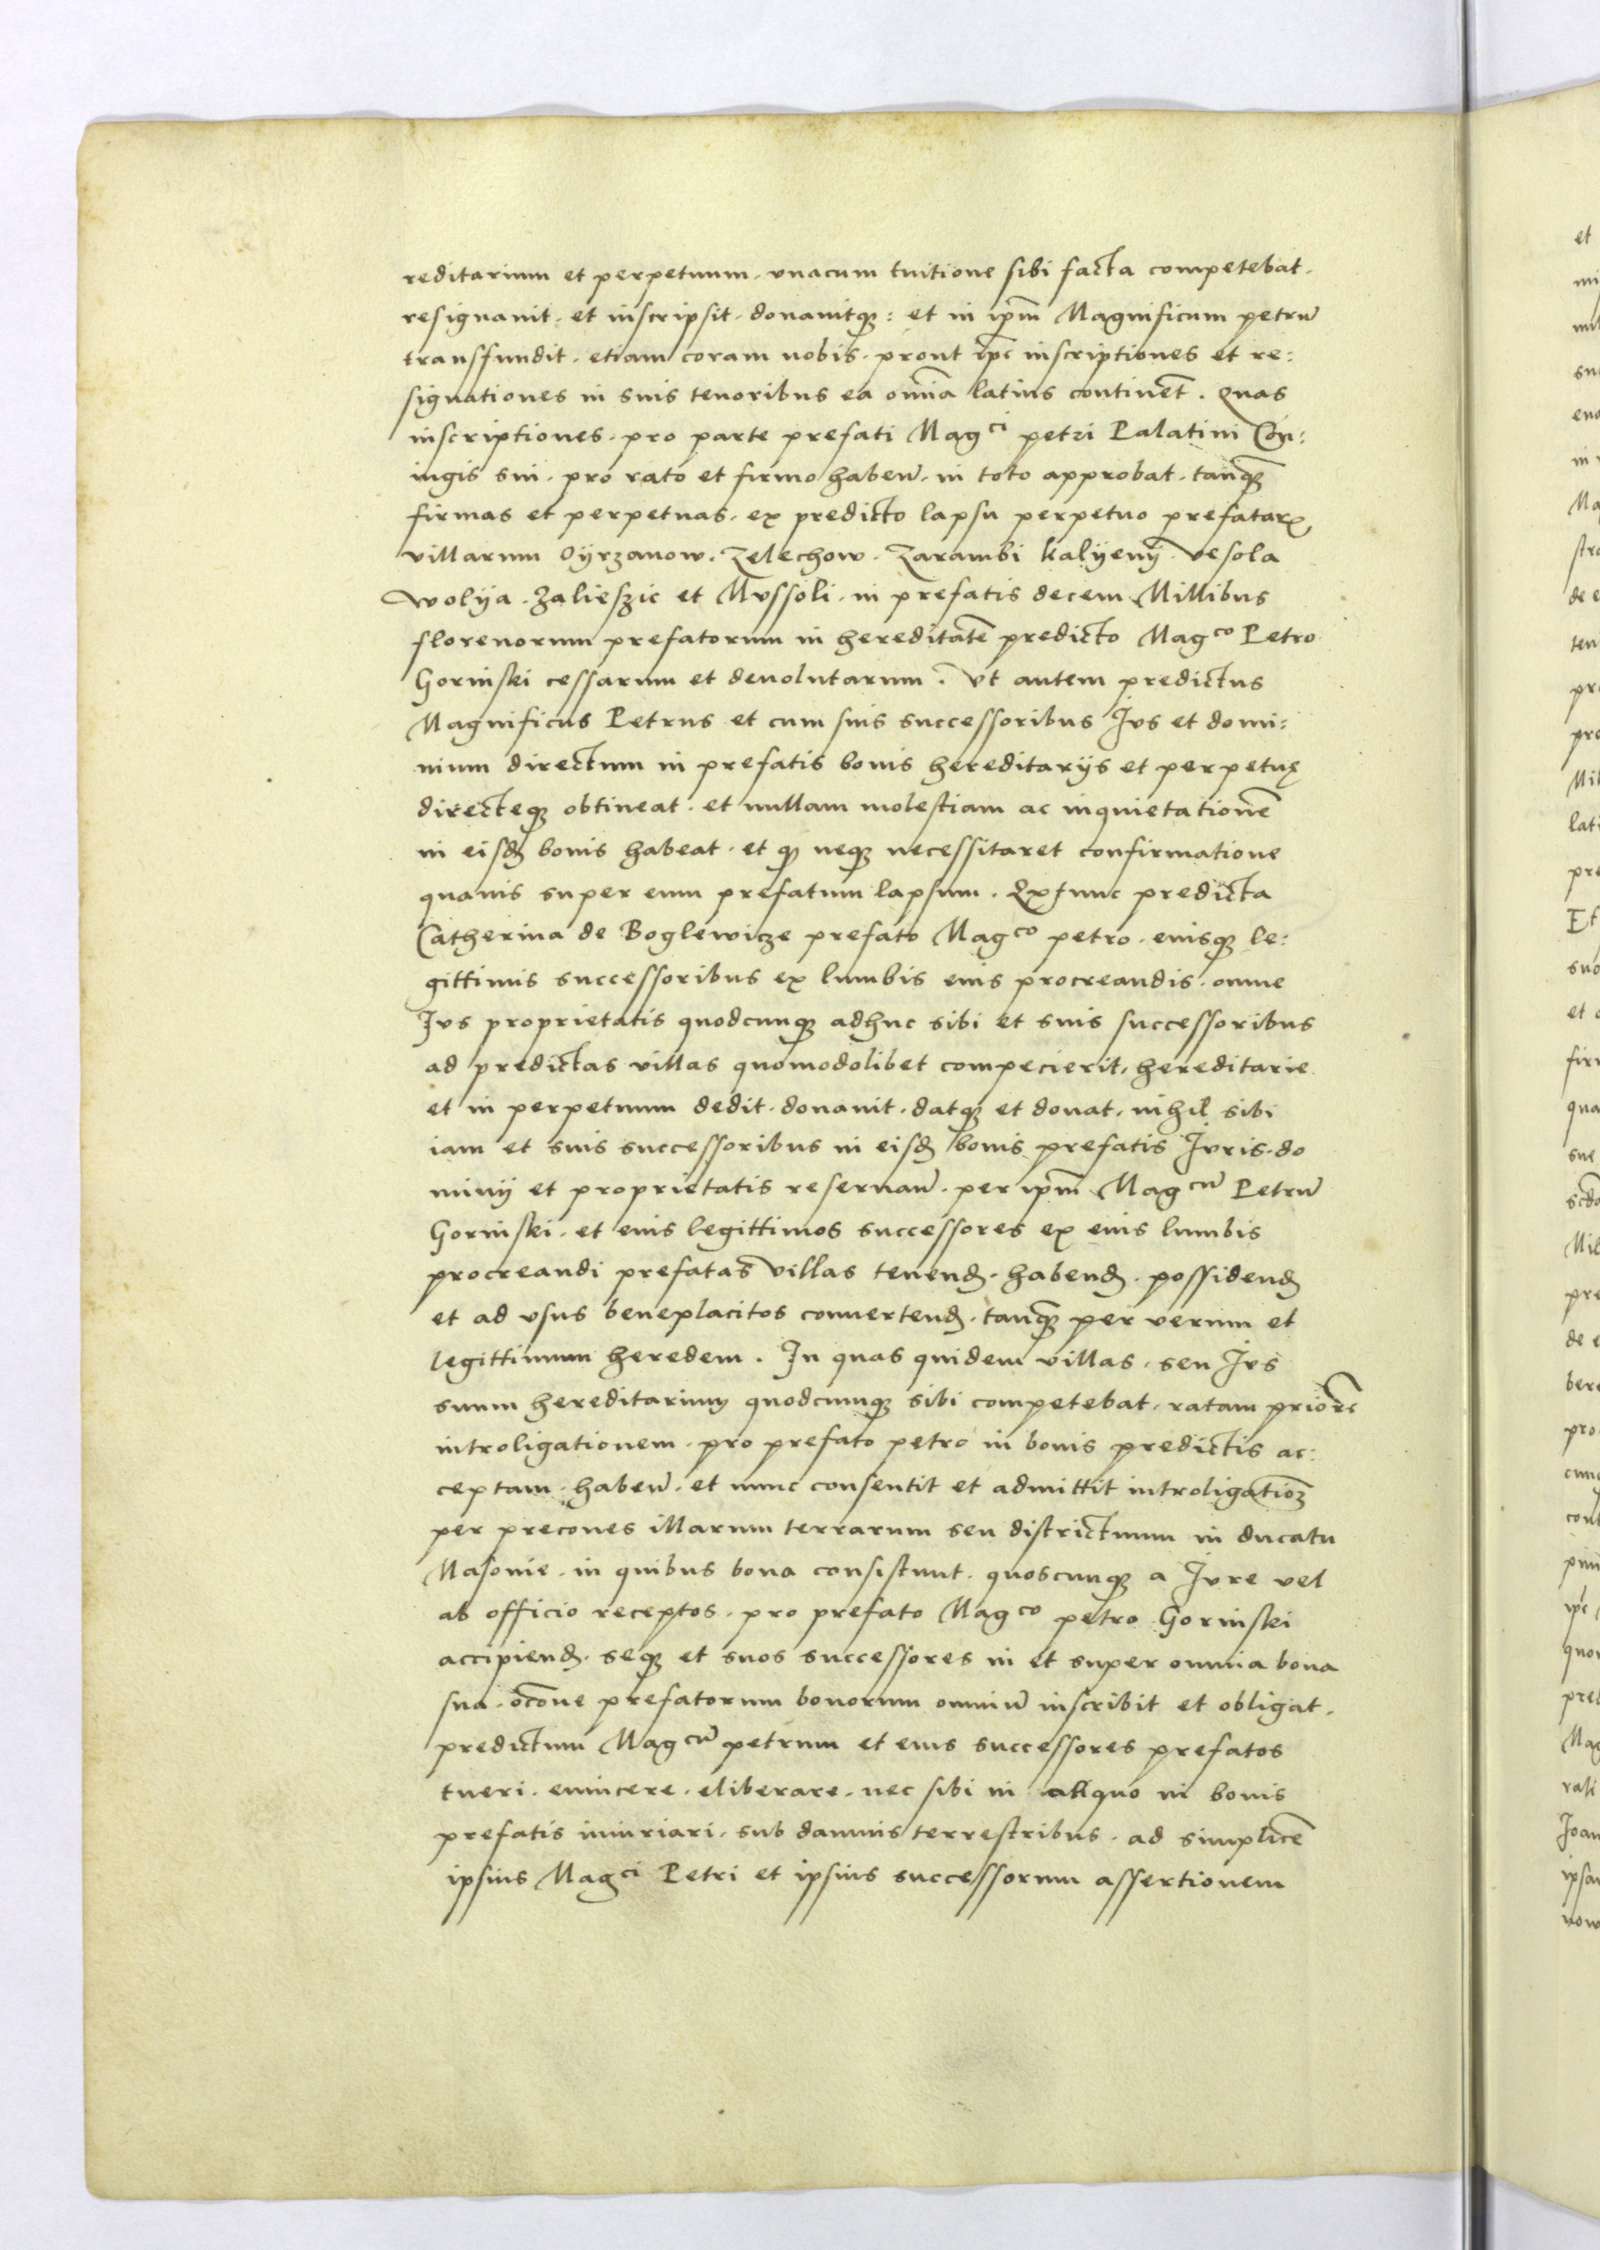 reditarium et perpetuum. vnacum tuitione sibi facta competebat.
resignauit. et inscripsit. donauitq3: et in ip̃m Magnificum petrũ
transfundit. etiam coram nobis. prout ip̃e inscriptiones et re:
signationes in suis tenoribus ea om̃ia latius continẽt. Quas
inscriptiones. pro parte prefati Magci petri Palatini Con:
iugis sui. pro rato et firmo habeñ. in toto approbat. tanq3
firmas et perpetuas. ex predicto lapsu perpetuo prefatarꝝ
villarum Oyrzanow. Zelechow. Zarambi kalÿenÿ vesola
wolÿa. Zalieszic et Mvssoli. in prefatis decem Millibus
florenorum prefatorum in hereditatẽ predicto Magco Petro
Gorinski cessarum et deuolutarum. Vt autem predictus
Magnificus Petrus et cum suis successoribus Jvs et domi:
nium directum in prefatis bonis hereditariis et perpetuę
directeq3 obtineat. et nullam molestiam ac inquietationẽ
in eisd̃ bonis habeat. et q3 neq3 necessitaret confirmatione
quauis super eum prefatum lapsum. Extunc predicta
Catherina de Boglewicze prefato Magco petro. eiusq3 le:
gittimis successoribus ex lumbis eius procreandis. omne
Jvs proprietatis quodcunq3 adhuc sibi et suis successoribus
ad predictas villas quomodolibet compecierit. hereditarie
et in perpetuum dedit. donauit. datq3 et donat. nihil sibi
iam et suis successoribus in eisd̃ bonis prefatis Jvris. do
minÿ et proprietatis reseruañ. per ip̃m Magcũ Petrũ
Gorinski. et eius legittimos successores ex eius lumbis
procreandi prefatas villas tenend̃. habend̃. possidend̃
et ad vsus beneplacitos conuertend̃. tanq3 per verum et
legittimum heredem. In quas quidem villas. seu Jvs
suum hereditarium quodcunq3 sibi competebat. ratam priorẽ
introligationem. pro prefato petro in bonis predictis ac:
ceptam. habeñ. et nunc consentit et admittit introligatioñ
per precones illarum terrarum seu districtuum in ducatu
Masouie. in quibus bona consistunt. quoscunq3 a Jvre vel
ab officio receptos. pro prefato Magco petro Gorinski
accipiend̃. seq3 et suos successores in et super omnia bona
sua. oc̃one prefatorum bonorum omniũ inscribit et obligat.
predictum Magcũ petrum et eius successores prefatos
tueri. euincere. eliberare. nec sibi in aliquo in bonis
prefatis iniuriari. sub damnis terrestribus. ad simplicẽ
ipsius Magci Petri et ipsius successorum assertionem